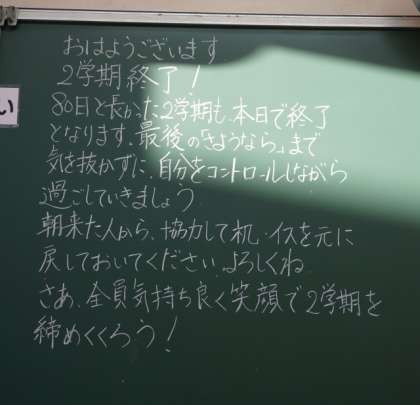 おはようございます
2学期終了!
80日と長かった2学期も、本日で終了
となります。最後の「さようなら」まで
気を抜かずに、自分をコントロールしながら
過ごしていきましょう
朝来た人から、協力して机・イスを元に
戻しておいてください。よろしくね
さあ、全員気持ち良く笑顔で2学期を
締めくくろう!
い